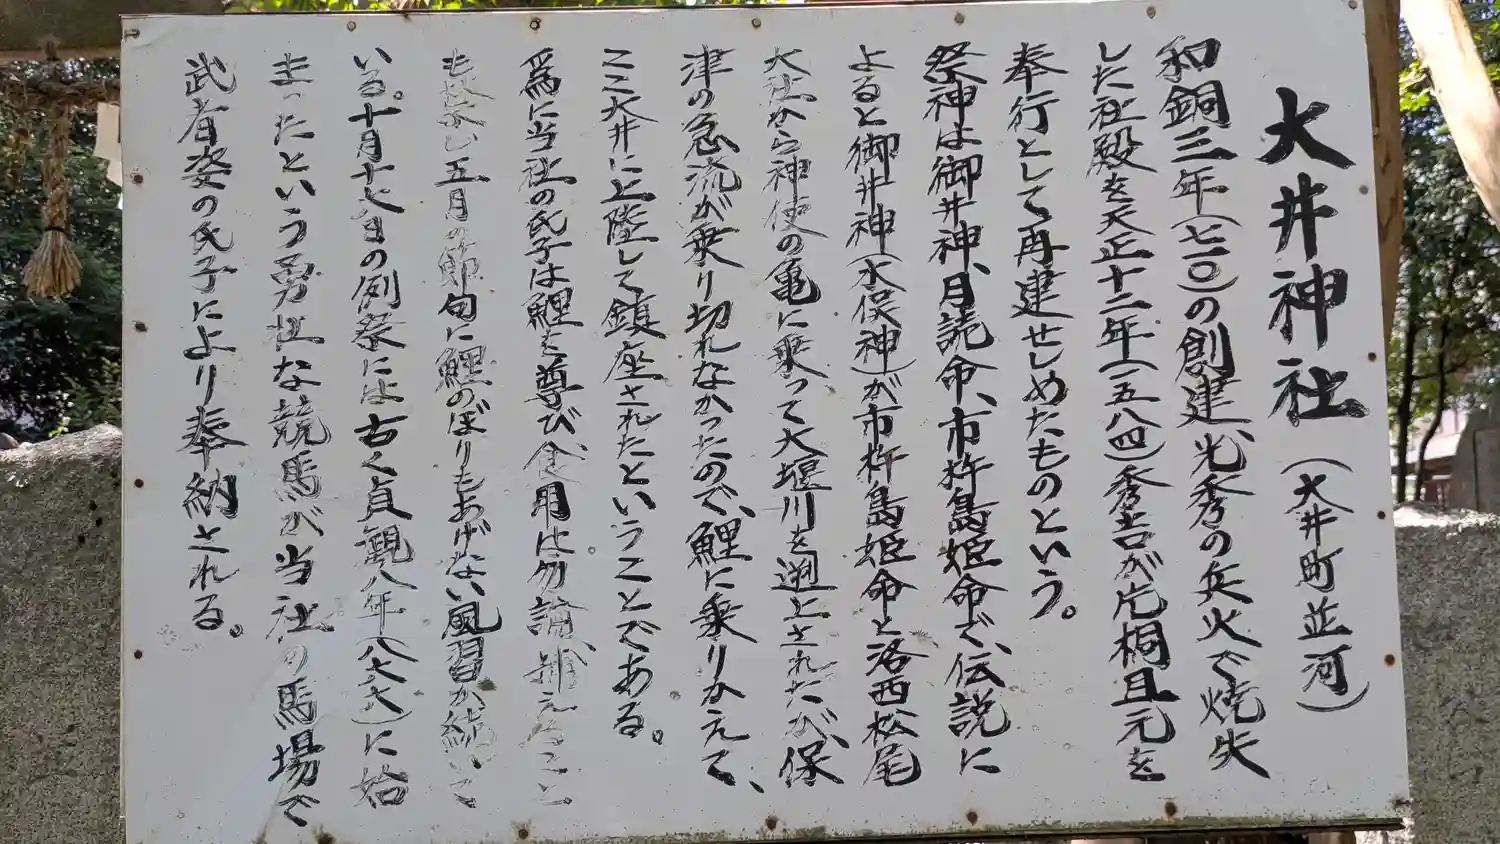 大井神社（大井町並河）
和銅三年（七一〇）の創建、光秀の兵火で焼失
した社殿を天正十二年（一五八四）秀吉が片桐且元を
奉行として再建せしめたものという。
祭神は御井神、月読命、市杵島姫命で、伝説に
よると御井神（水俣神）が市杵島姫命と洛西松尾
大社から神使の亀に乗って大堰川を遡上されたが、保
津の急流が乗り切れなかったので、鯉に乗りかえて、
ここ大井に上陸して鎮座されたということである。
為に当社の氏子は鯉を尊び、食用は勿論、捕えること
も禁忌し五月の節句に鯉のぼりもあげない風習が続いて
いる。十月十七日の例祭には古く貞観八年（八六六）に始
まったという勇壮な競馬が当社の馬場で
武者姿の氏子により奉納される。